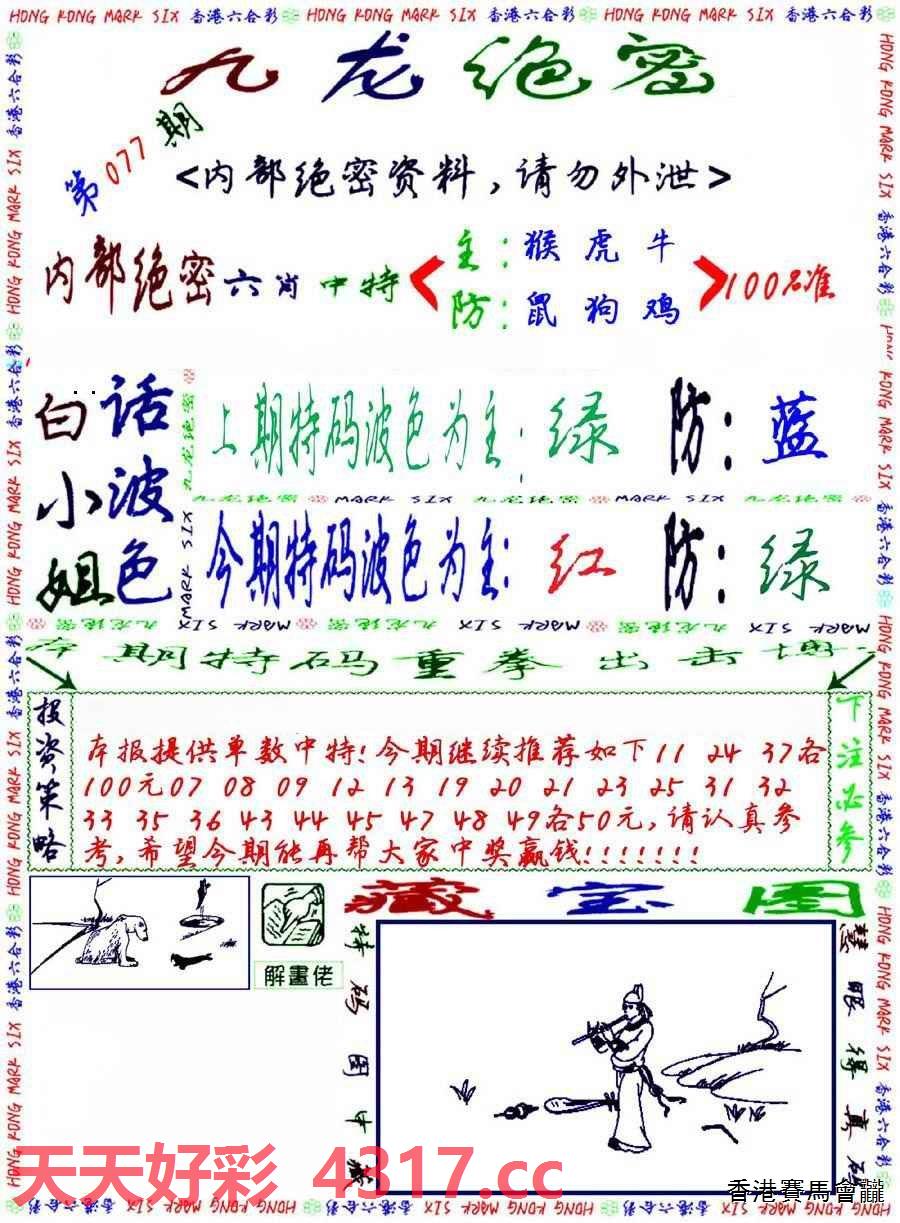 HONG KONG MARK SIX 香港六合彩 HONG KONG MARK SIX 香港六合彩 HONG KONG MARK SIX 香港六合彩
九龙绝密
第077期
<内部绝密资料,请勿外泄>
内部绝密六肖中特
主:猴虎牛
防:鼠狗鸡
100%准
白话小波姐色
上期特码波色为主:绿 防:蓝
九龙绝密 MARK SIX 九龙绝密 MARK SIX 九龙绝密
今期特码波色为主:红 防:绿
MARK SIX 九龙绝密 MARK SIX 九龙绝密 MARK SIX 九龙绝密 MARK SIX
期特码重拳出击
投资策略
本报提供单数中特!今期继续推荐如下11 24 37各
100元07 08 09 12 13 19 20 21 23 25 31 32
33 35 36 43 44 45 47 48 49各50元,请认真参
考,希望今期能再帮大家中奖赢钱!!!!!!!
下注必参
藏宝图
解畫佬
特码图中藏
慧眼得真码
天天好彩 4317.cc
香港賽馬會